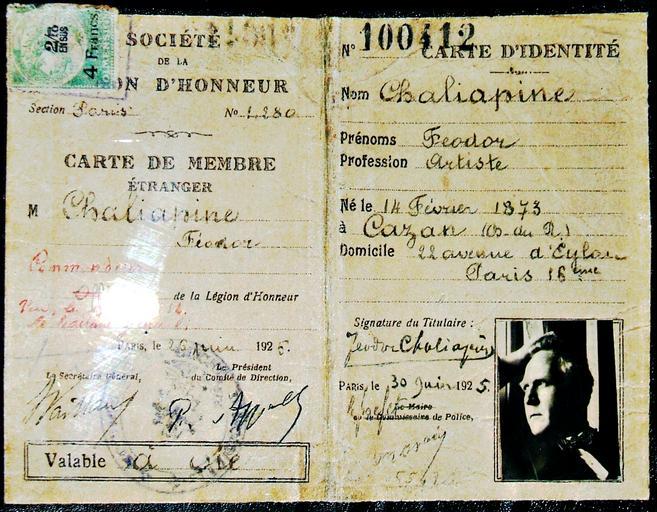 2/10
EN SUS
4 Francs
SOCIÉTÉ
DE LA
ON D'HONNEUR
Section Paris No 1.280
CARTE DE MEMBRE
ÉTRANGER
M Chaliapine
Féodor
de la Légion d'Honneur
PARIS, le 26 juin 1925.
Le Secrétaire Général,
Le Président
du Comité de Direction,
Valable à vie
N° 100412
CARTE D'IDENTITÉ
Nom Chaliapine
Prénoms Feodor
Profession Artiste
Né le 14 Février 1873
à Cazan (G. du R.)
Domicile 22 avenue d'Eylau
Paris 16ème
Signature du Titulaire :
Feodor Chaliapine
PARIS, le 30 Juin 1925.
Le Maire
ou le Commissaire de Police,